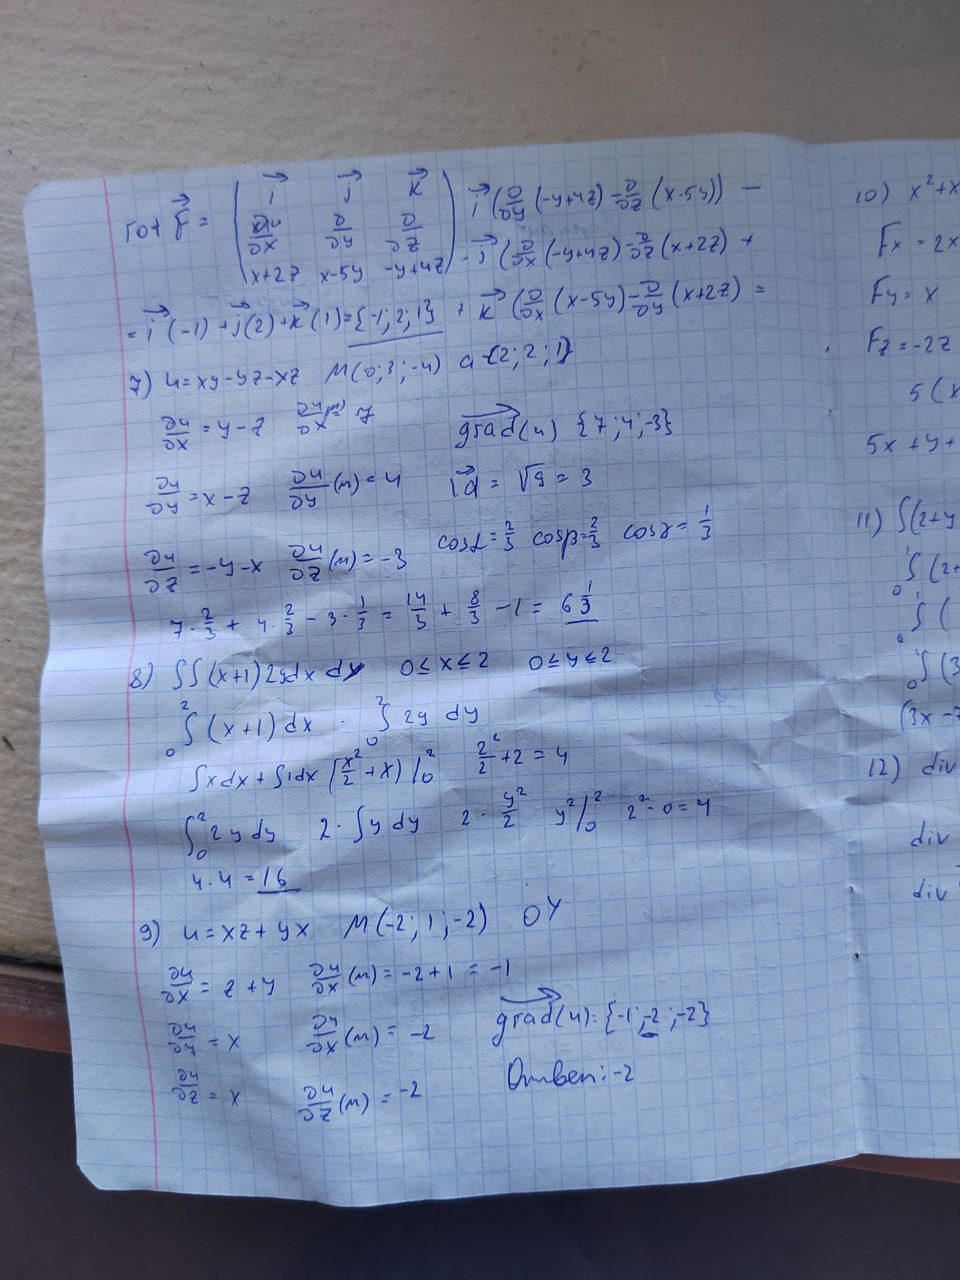 rot F⃗ = | i⃗ j⃗ k⃗ | i⃗ (∂/∂y (-y+4z) - ∂/∂z (x-5y)) -
| ∂/∂x ∂/∂y ∂/∂z |
| x+2z x-5y -y+4z | - j⃗ (∂/∂x (-y+4z) - ∂/∂z (x+2z) +
+ k⃗ (∂/∂x (x-5y) - ∂/∂y (x+2z) =
= i⃗ (-1) + j⃗ (2) + k⃗ (1) = {-1; 2; 1}
7) u = xy - yz - xz M(0; 3; -4) a {2; 2; 1}
∂u/∂x = y - z ∂u/∂x (м) = 7 grad(u) {7; 4; -3}
∂u/∂y = x - z ∂u/∂y (м) = 4 |a⃗ = √9 = 3
∂u/∂z = -y - x ∂u/∂z (м) = -3 cosα = 2/3 cosβ = 2/3 cosγ = 1/3
7 · 2/3 + 4 · 2/3 - 3 · 1/3 = 14/3 + 8/3 - 1 = 6 1/3
8) ∫∫ (x+1) 2y dx 0 ≤ x ≤ 2 0 ≤ y ≤ 2
₀∫² (x+1) dx · ₀∫² 2y dy
∫x dx + ∫1 dx (x²/2 + x) |₀² 2²/2 + 2 = 4
∫₀² 2y dy 2 · ∫y dy 2 · y²/2 y² |₀² 2² - 0 = 4
4 · 4 = 16
9) u = xz + yx M(-2; 1; -2) OY
∂u/∂x = z + y ∂u/∂x (м) = -2 + 1 = -1
∂u/∂y = x ∂u/∂x (м) = -2 grad(u): {-1; -2; -2}
∂u/∂z = x ∂u/∂z (м) = -2 Ответ: -2
10) x² + x
Fx = 2x
Fy = x
Fz = -2z
5 (x
5x + y +
11) ∫(2+y
₀∫¹ (2+
₀∫¹ (
₀∫¹ (3
(3x - 7
12) div
div
div